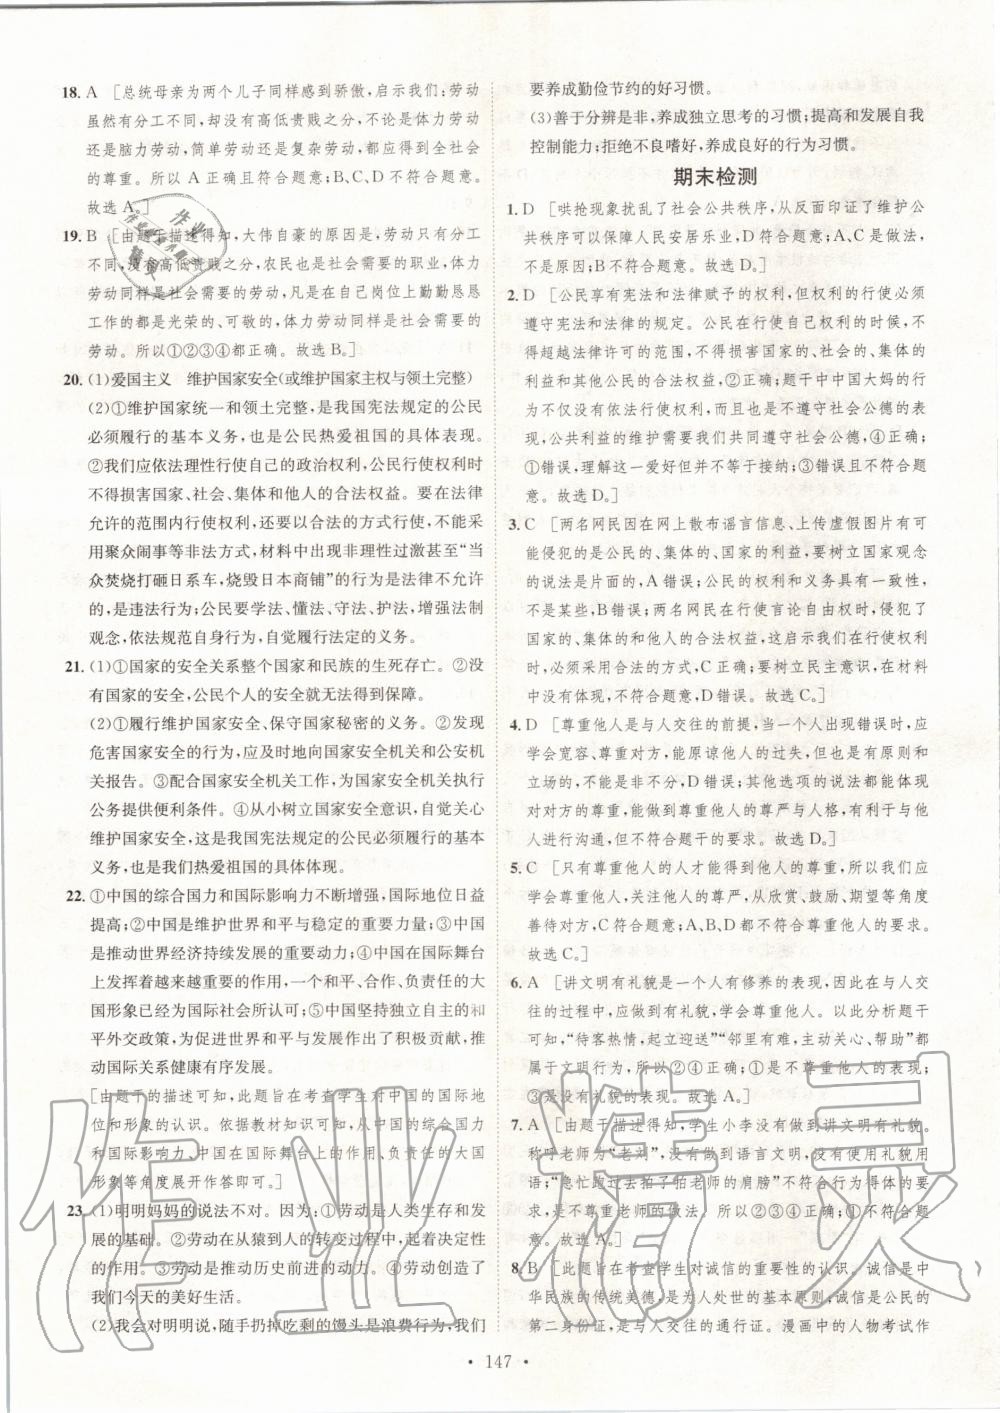 18. A [总统母亲为两个儿子同样感到骄傲,启示我们:劳动
虽然有分工不同,却没有高低贵贱之分,不论是体力劳动
还是脑力劳动,简单劳动还是复杂劳动,都受到全社会
的尊重。所以A正确且符合题意;B、C、D不符合题意。
故选A。]
19. B [由题干描述得知,大伟自豪的原因是,劳动只有分工
不同,没有高低贵贱之分,农民也是需要的职业,体力
劳动同样是社会需要的劳动,凡是在自己岗位上勤勤恳恳
工作的都是光荣的、可敬的,体力劳动同样是社会需要的
劳动。所以①②③④都正确。故选B。]
20. (1)爱国主义 维护国家安全(或维护国家主权与领土完整)
(2)①维护国家统一和领土完整,是我国宪法规定的公民
必须履行的基本义务,也是公民热爱祖国的具体表现。
②我们应依法理性行使自己的政治权利,公民行使权利时
不得损害国家、社会、集体和他人的合法权益。要在法律
允许的范围内行使权利,还要以合法的方式行使,不能采
用聚众闹事等非法方式,材料中出现非理性过激甚至“当
众焚烧打砸日系车,烧毁日本商铺”的行为是法律不允许
的,是违法行为;公民要学法、懂法、守法、护法,增强法制
观念,依法规范自身行为,自觉履行法定的义务。
21. (1)①国家的安全关系整个国家和民族的生死存亡。②没
有国家的安全,公民个人的安全就无法得到保障。
(2)①履行维护国家安全、保守国家秘密的义务。②发现
危害国家安全的行为,应及时地向国家安全机关和公安机
关报告。③配合国家安全机关工作,为国家安全机关执行
公务提供便利条件。④从小树立国家安全意识,自觉关心
维护国家安全,这是我国宪法规定的公民必须履行的基本
义务,也是我们热爱祖国的具体体现。
22. ①中国的综合国力和国际影响力不断增强,国际地位日益
提高;②中国是维护世界和平与稳定的重要力量;③中国
是推动世界经济持续发展的重要力量;④中国在国际舞台
上发挥着越来越重要的作用,一个和平、合作、负责任的大
国形象已经成为国际社会所认可;⑤中国坚持独立自主的和
平外交政策,为促进世界和平与发展作出了积极贡献,推
动国际关系健康有序发展。
[由题干的描述可知,此题旨在考查学生对中国的国际地
位和形象的认识。依据教材知识可知,中国的综合国力
和国际影响、中国在国际舞台上的作用、负责任的大国
形象等角度展开作答即可。]
23. (1)明明妈妈的说法不对。因为:①劳动是人类生存和发
展的基础。②劳动在从猿到人的转变过程中,起着决定性
的作用。③劳动是推动历史前进的动力。④劳动创造了
我们今天的美好生活。
(2)我会对明明说,随手扔掉吃剩的馒头是浪费行为,我们
要养成勤俭节约的好习惯。
(3)善于分辨是非,养成独立思考的习惯;提高和发展自我
控制能力;拒绝不良嗜好,养成良好的行为习惯。
期末检测
1. D [哄抢现象扰乱了社会公共秩序,从反面印证了维护公
共秩序可以保障人民安居乐业,D符合题意;A、C是做法,
不是原因;B不符合题意。故选D。]
2. D [公民享有宪法和法律赋予的权利,但权利的行使必须
遵守宪法和法律的规定。公民在行使自己权利的时候,不
得超越法律许可的范围,不得损害国家的、社会的、集体的
利益和其他公民的合法权益,②正确;题干中中国大妈的行
为不仅没有依法行使权利,而且也是不遵守社会公德的表
现,公共利益的维护需要我们共同遵守社会公德,④正确;
①错误,理解这一爱好但并不等于接纳;③错误且不符合题
意。故选D。]
3. C [两名网民因在网上散布谣言信息、上传虚假图片有可
能侵犯的是公民的、集体的、国家的利益,要树立国家观念
的说法是片面的,A错误;公民的权利和义务具有一致性,
不是某些,B错误;两名网民在行使言论自由权时,侵犯了
国家的、集体的和他人的合法权益,这启示我们在行使权利
时,必须采用合法的方式,C正确;要树立民主意识,在材料
中没有体现,不符合题意,D错误。故选C。]
4. D [尊重他人是与人交往的前提,当一个人出现错误时,应
学会宽容、尊重对方,能原谅他人的过失,但应是有原则和
立场的,不能是非不分,D错误;其他选项的说法都能做到
对对方的尊重,能做到尊重他人的尊严与人格,有利于与人
进行沟通,但不符合题干的要求。故选D。]
5. C [只有尊重他人的人才能得到他人的尊重,所以我们应
学会尊重他人,关注他人的尊严,从欣赏、鼓励、期望等角度
善待对方,C符合题意;A、B、D都不符合尊重他人的要求。
故选C。]
6. A [讲文明有礼貌是一个人有修养的表现,因此在与人交
往的过程中,应做到有礼貌,尊重对方。以此分析题干
可知,“待客热情,起立迎送”“邻里有难,主动关心、帮助”都
属于文明有礼的行为,所以①②④符合题意。
③是没有礼貌的表现。故选A。]
7. A [由题干描述得知,学生小李没有做到讲文明有礼貌。
称呼老师为“老刘”,没有做到语言文明,没有使用礼貌用
语;“急忙跑过去拍了拍老师的肩膀”不符合行为得体的要
求,是不尊重老师的做法,所以②③④正确;①不符合题
意。故选A。]
8. B [此题旨在考查学生对诚信的重要性的认识。诚信是中
华民族的传统美德,是为人处世的基本原则;诚信是公民的
第二身份证,是与人交往的通行证。漫画中的人物考试作
• 147 •
作业精灵